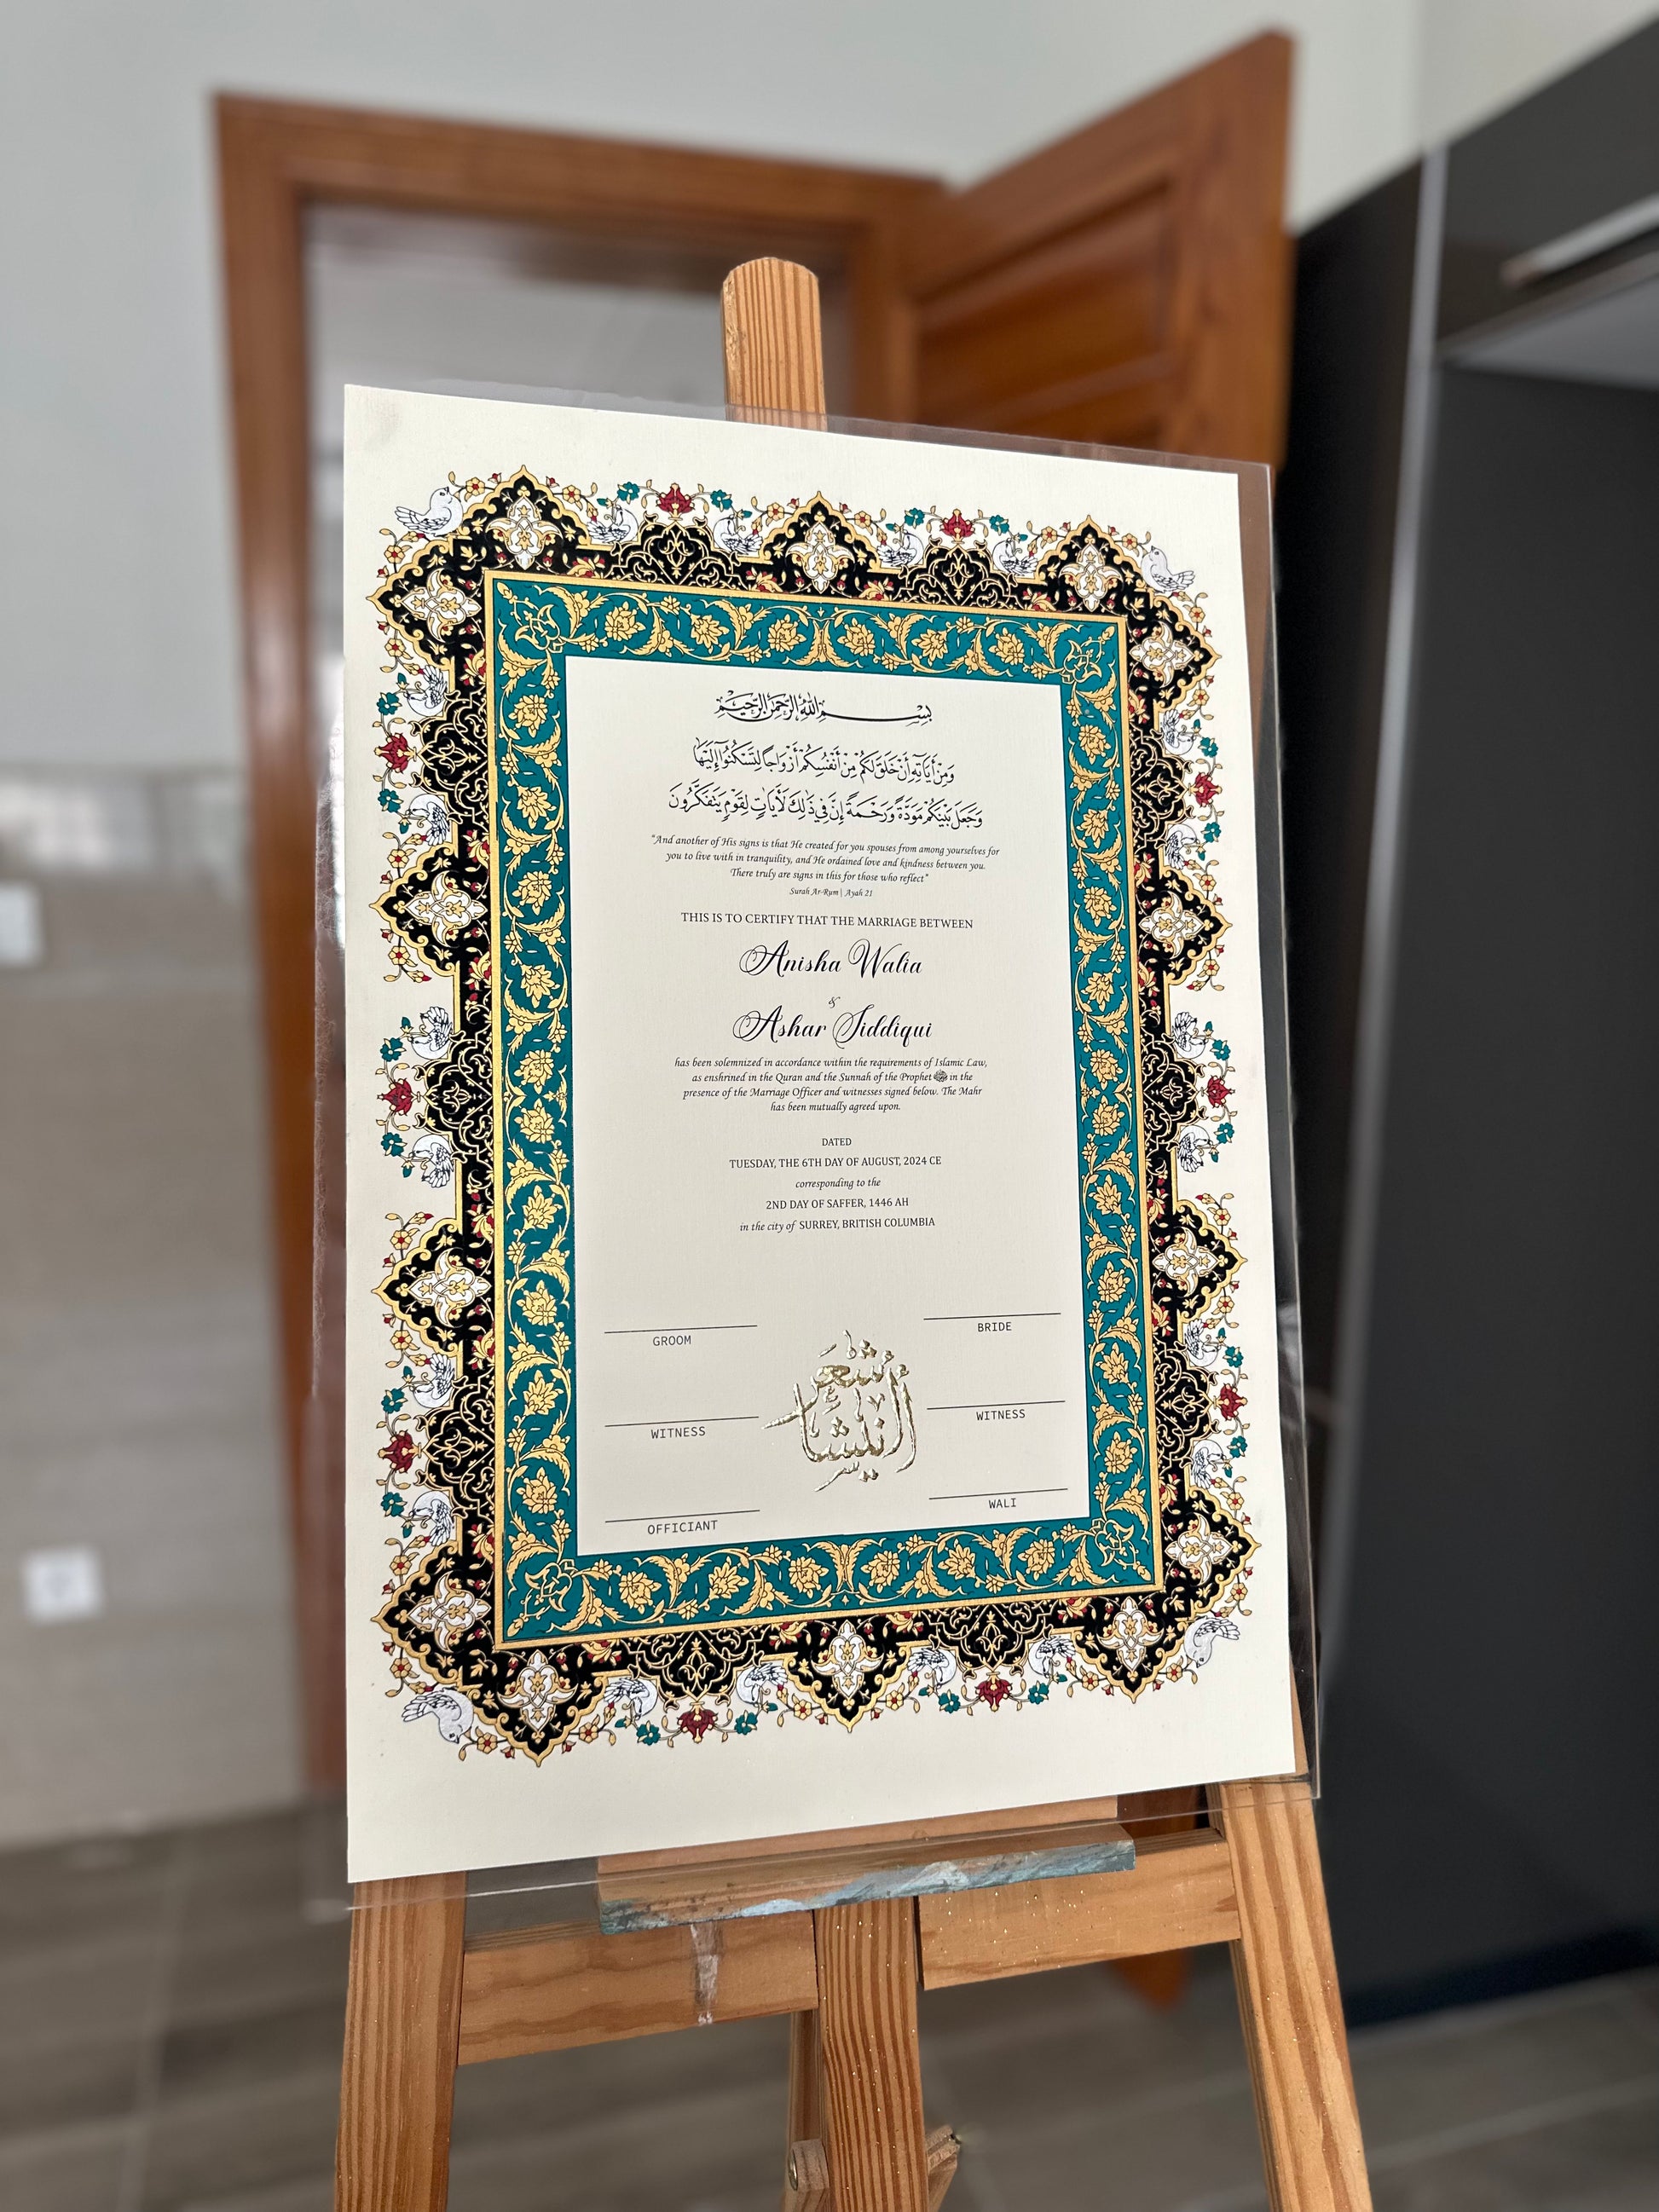 بِسْمِ اللهِ الرَّحْمٰنِ الرَّحِيْمِ
وَمِنْ أَيَاتِهِ أَنْ خَلَقَ لَكُمْ مِنْ أَنْفُسِكُمْ أَزْوَاجًا لِتَسْكُنُوا إِلَيْهَا
وَجَعَلَ بَيْنَكُمْ مَوَدَّةً وَرَحْمَةً إِنَّ فِي ذَٰلِكَ لَأَيَاتٍ لِقَوْمٍ يَتَفَكَّرُونَ
"And another of His signs is that He created for you spouses from among yourselves for
you to live with in tranquility, and He ordained love and kindness between you.
There truly are signs in this for those who reflect"
Surah Ar-Rum | Ayah 21
THIS IS TO CERTIFY THAT THE MARRIAGE BETWEEN
Anisha Walia
&
Ashar Siddiqui
has been solemnized in accordance within the requirements of Islamic Law,
as enshrined in the Quran and the Sunnah of the Prophet ﷺ in the
presence of the Marriage Officer and witnesses signed below. The Mahr
has been mutually agreed upon.
DATED
TUESDAY, THE 6TH DAY OF AUGUST, 2024 CE
corresponding to the
2ND DAY OF SAFFER, 1446 AH
in the city of SURREY, BRITISH COLUMBIA
GROOM
BRIDE
WITNESS
WITNESS
OFFICIANT
WALI